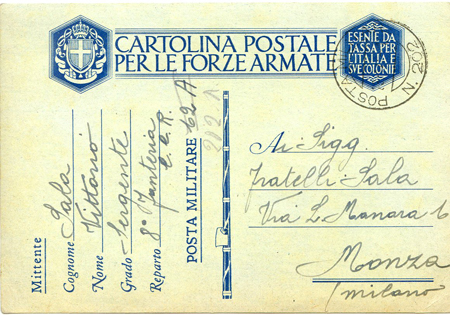 CARTOLINA POSTALE
PER LE FORZE ARMATE
ESENTE DA
TASSA PER
L'ITALIA E
SUE COLONIE
POSTA
N. 202
Mittente
Cognome Sala
Nome Vittorio
Grado Sergente
Reparto 8° Fanteria
C.C.R.
POSTA MILITARE 62 A
202 A
Ai Sigg.
Fratelli Sala
Via L. Manara 6
Monza
(Milano)